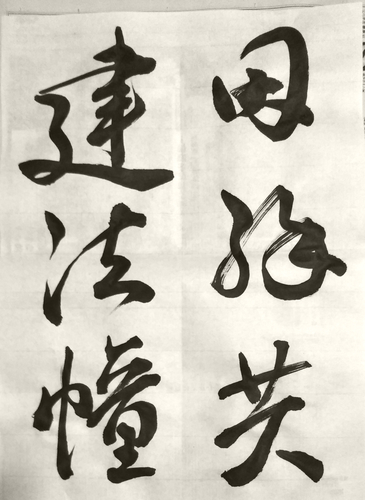 因緣共
建法幢